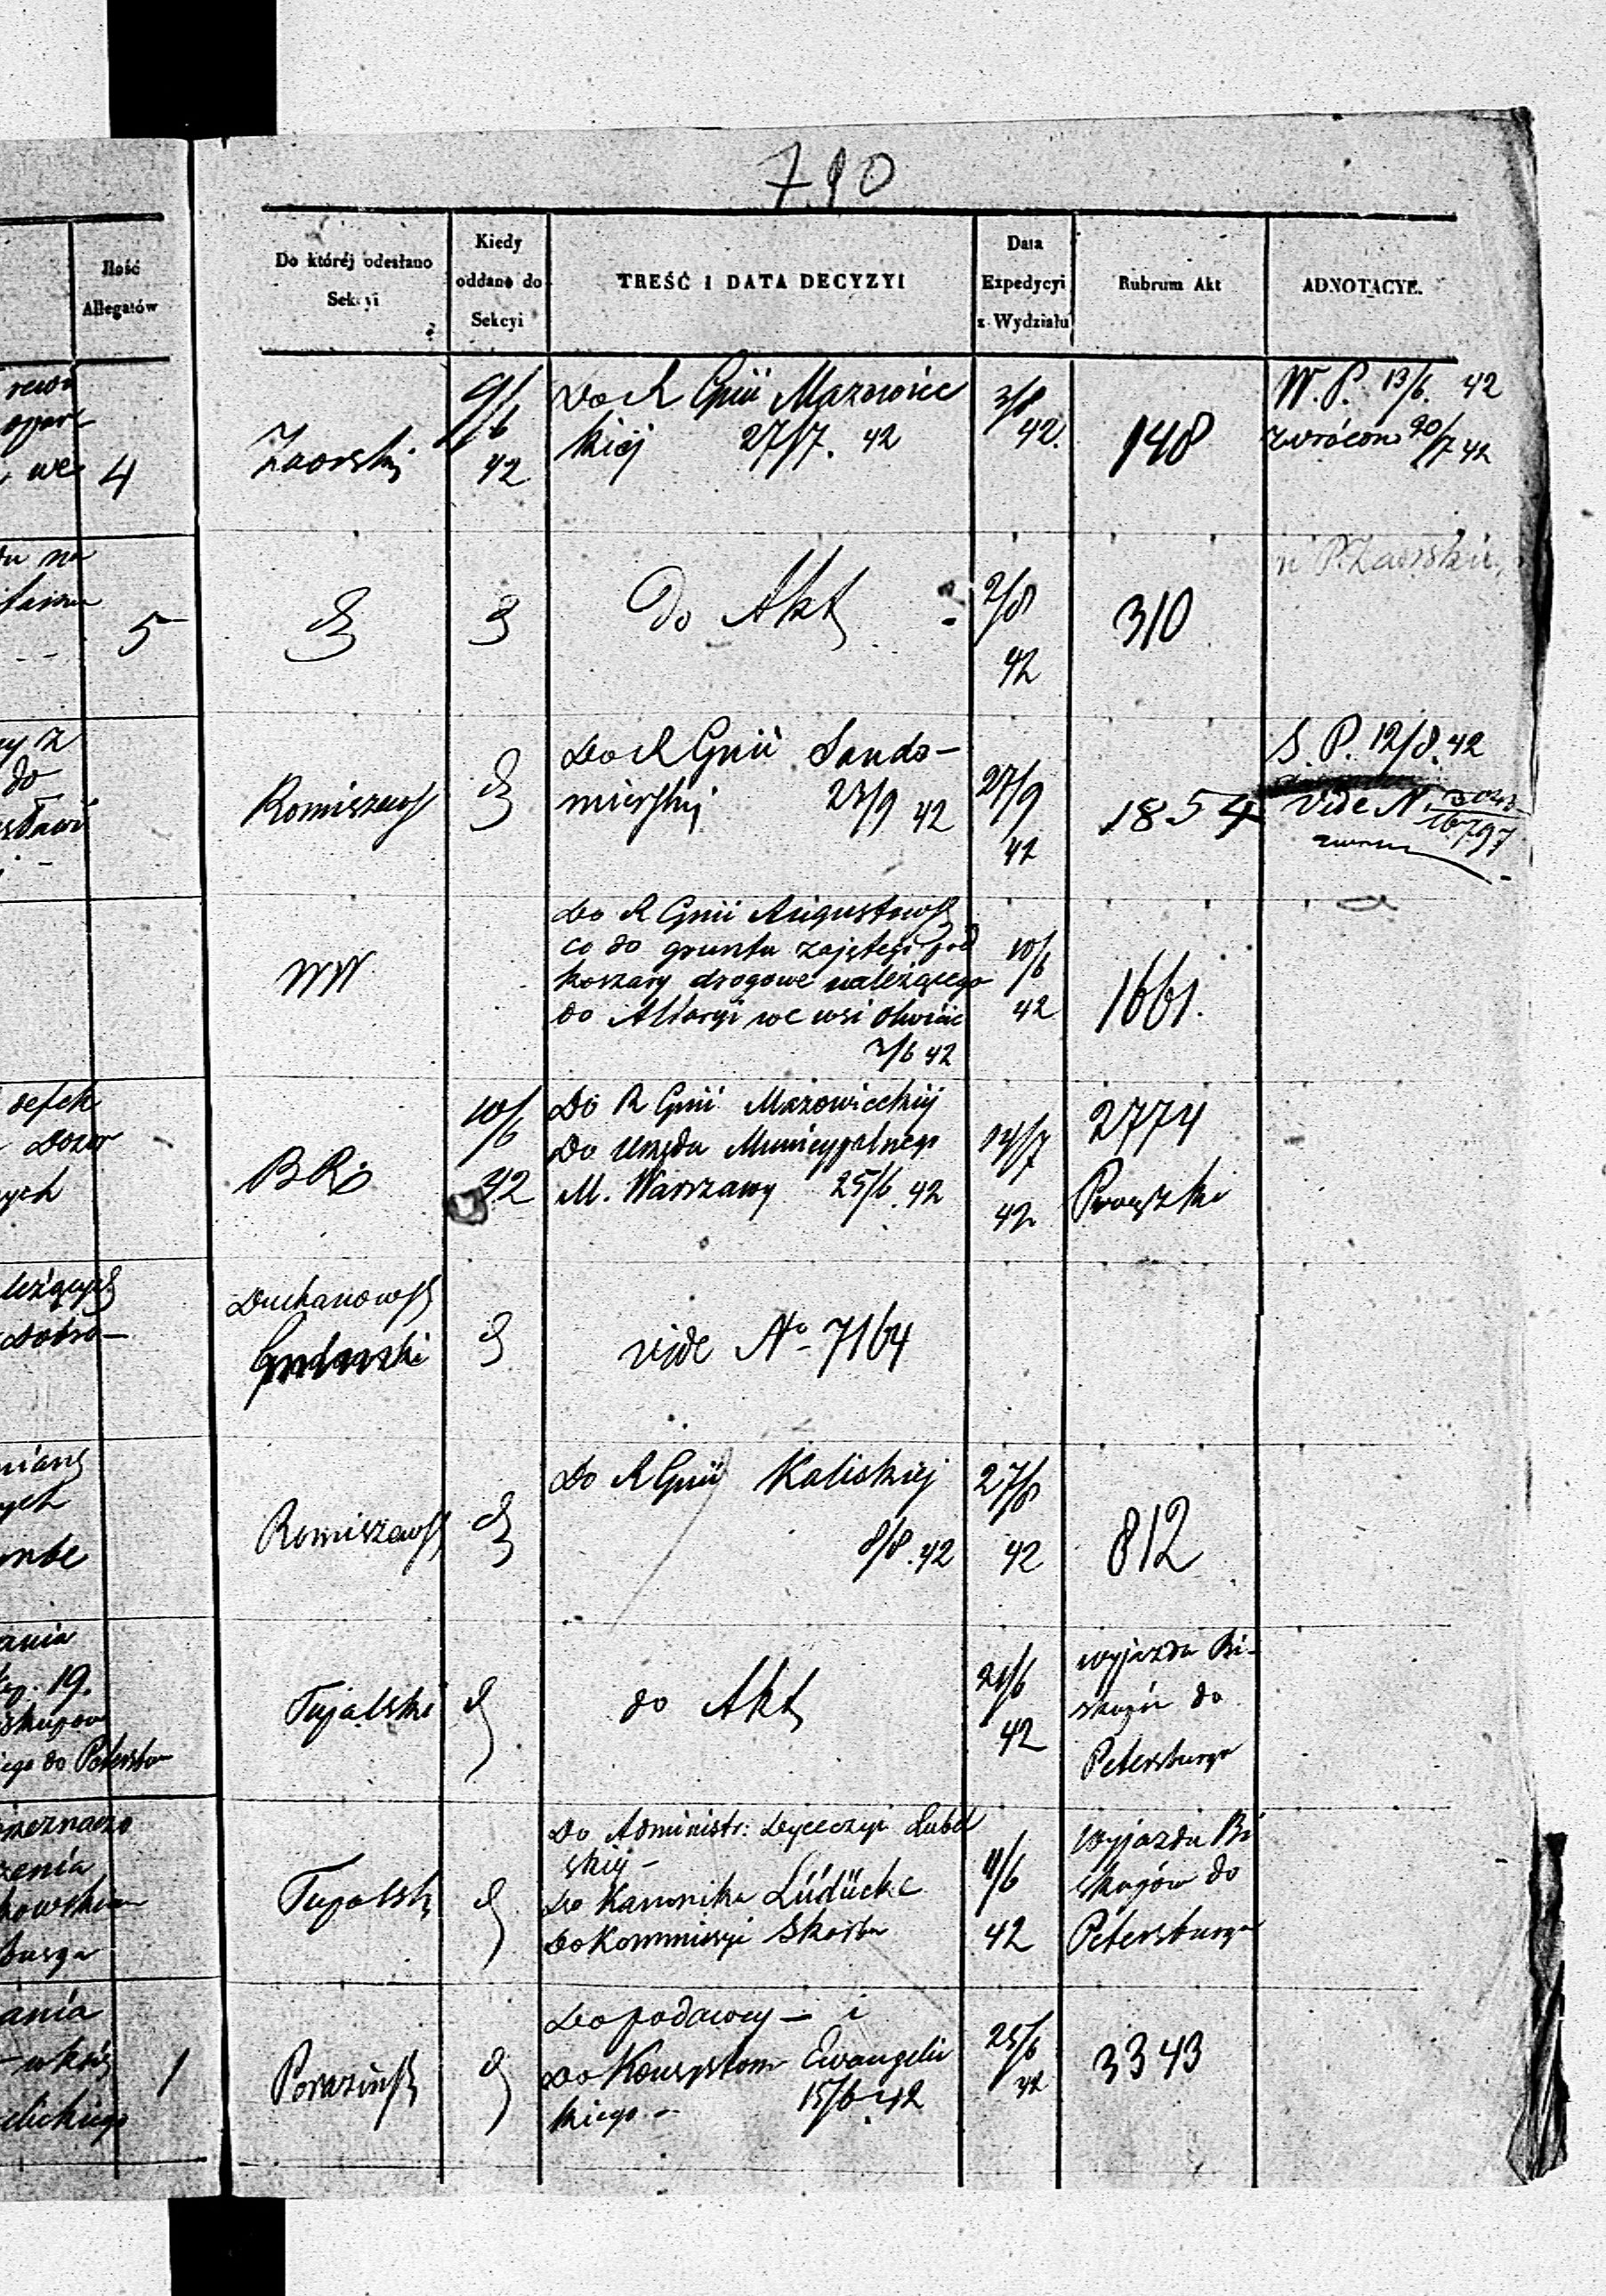 790
Ilość
Allegatów
Do któréj odesłano
Sekcyi
Kiedy
oddano do
Sekcyi
TREŚĆ I DATA DECYZYI
Data
Expedycyi
z Wydziału
Rubrum Akt
ADNOTACYE.
4
Zaorski
9/6
42
Do R Gnii Mazowiec
kiéj 27/7. 42
3/8
42.
148
W. P. 13/6. 42
zwrócono 20/7 42
du na
5
Do Akt
2/8
42
310
P. Zaorski
do
Romiszews
Do R Gnii Sando-
mierskij 23/9 42
27/9
42
1854
S. P. 12/8. 42
vide N.
16797
WW
Do R Gnii Augustows
co do gruntu zajętego pod
koszary drogowe należącego
do Altaryi we wsi
3/6 42
10/6
42
1661.
ych
10/6
42
Do R Gnii Mazowieckiij
Do Urzędu Municypalnego
M. Warszawy 25/6. 42
14/7
42
2774
Duchanows
vide No 7164
ych
Romiszews
Do R Gnii Kaliskiej
8/8. 42
27/8
42
812
ania
19.
do
Tupalski
do Akt
21/6
42
wyjazdu Bi-
skupów do
Petersburga
zenia
burga
Tupalsk
Do Administr: Dyecezyi Lubel
skiij -
Do Kanonika Lüdücke
Do Kommissyi Skarbu
11/6
42
Wyjazdu Bi
skupów do
Petersburga
ania
1
Porazińs
Do podawcy - i
Do Konsystorz Ewangelic
kiego - 15/6 42
25/6
42
3343